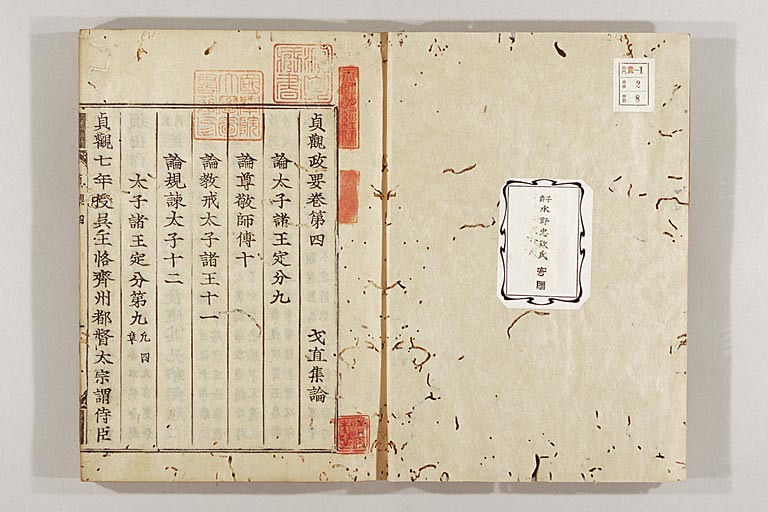 貞觀政要卷第四　戈直集論
論太子諸王定分九
論尊敬師傅十
論教戒太子諸王十一
論規諫太子十二
太子諸王定分第九 凡四章
貞觀七年授吳王恪齊州都督太宗謂侍臣
子爵水野忠欵氏寄贈
貴-1
2
8